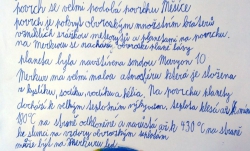 povrch se velmi podobá povrchu Měsíce
povrch je pokryt obrovským množstvím kráterů
vzniklých srážkou meteoritů s planetami na povrchu.
na Merkuru se nachází obrovské pláně lávy
planeta byla navštívena sondou Mariner 10
Merkur má velmi malou atmosféru která je složena
z kyslíku, sodíku, vodíku a hélia. Na povrchu planety
dochází k velkým teplotním výkyvům, teplota klesá až k mínus
180°C na straně odkloněné a naopak až k 430°C na straně
ke slunci na vzdory obrovským teplotám
může být na Merkuru led